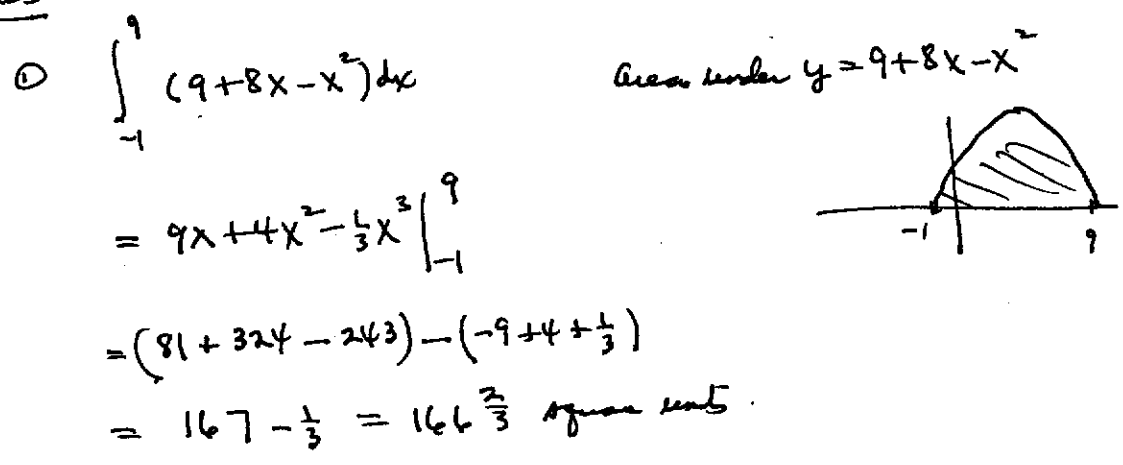 ① ∫_{-1}^{9} (9+8x-x²)dx
Area under y = 9+8x-x²
-1 9
= 9x+4x²-⅓x³|_{-1}^{9}
= (81 + 324 - 243) - (-9+4+⅓)
= 167 - ⅓ = 166⅔ square units.